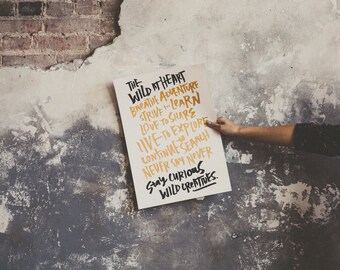 THE
WILD AT HEART
BREATHE ADVENTURE
STRIVE to LEARN
LOVE TO SHARE
LIVE TO EXPLORE
CONTINUE SEARCH
NEVER SAY NEVER
Stay CURIOUS
WILD CREATIVES.